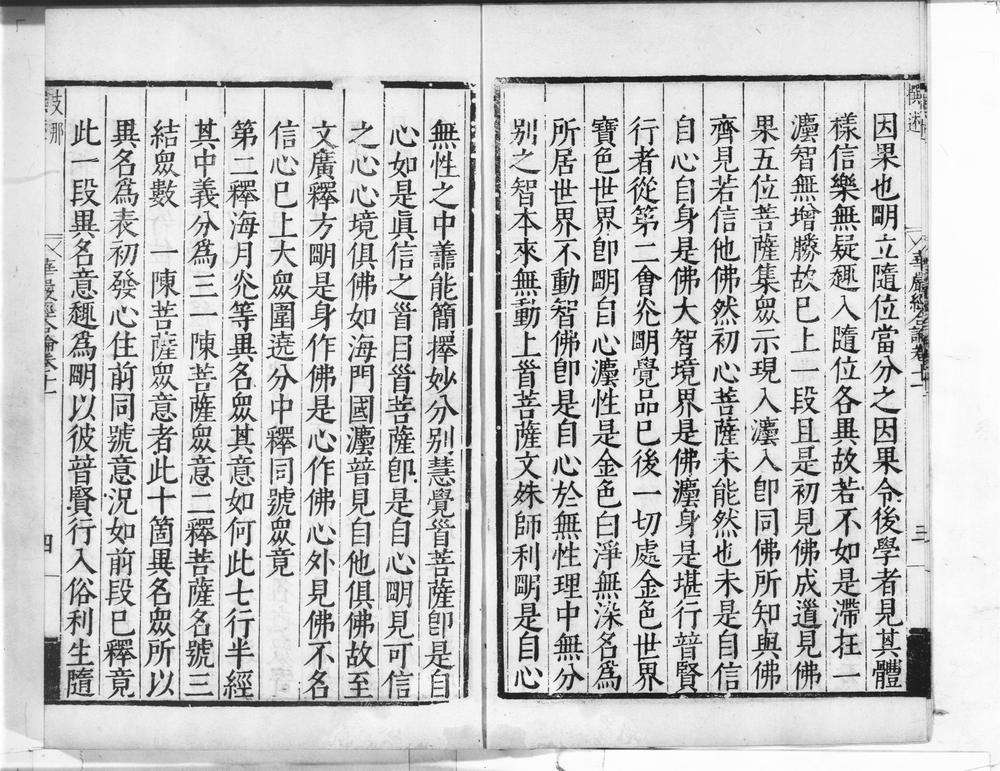 因果也明立隨位當分之因果令後學者見其體
樣信樂無疑趣入隨位各異故若不如是滯在一
灋智無增勝故已上一段且是初見佛成道見佛
果五位菩薩集眾示現入灋入卽同佛所知與佛
齊見若信他佛然初心菩薩未能然也未是自信
自心自身是佛大智境界是佛灋身是堪行普賢
行者從第二會光明覺品已後一切處金色世界
寶色世界卽明自心灋性是金色白淨無染名爲
所居世界不動智佛卽是自心於無性理中無分
別之智本來無動上首菩薩文殊師利明是自心
華嚴經合論卷十一
三
無性之中善能簡擇妙分別慧覺首菩薩卽是自
心如是眞信之首目首菩薩卽是自心明見可信
之心心境俱佛如海門國灋普見自他俱佛故至
文廣釋方明是身作佛是心作佛心外見佛不名
信心已上大眾圍遶分中釋同號眾竟
第二釋海月光等異名眾其意如何此七行半經
其中義分爲三一陳菩薩眾意二釋菩薩名號三
結眾數　一陳菩薩眾意者此十箇異名眾所以
異名爲表初發心住前同號意況如前段已釋竟
此一段異名意趣爲明以彼普賢行入俗利生隨
支那
華嚴經合論卷十一
四